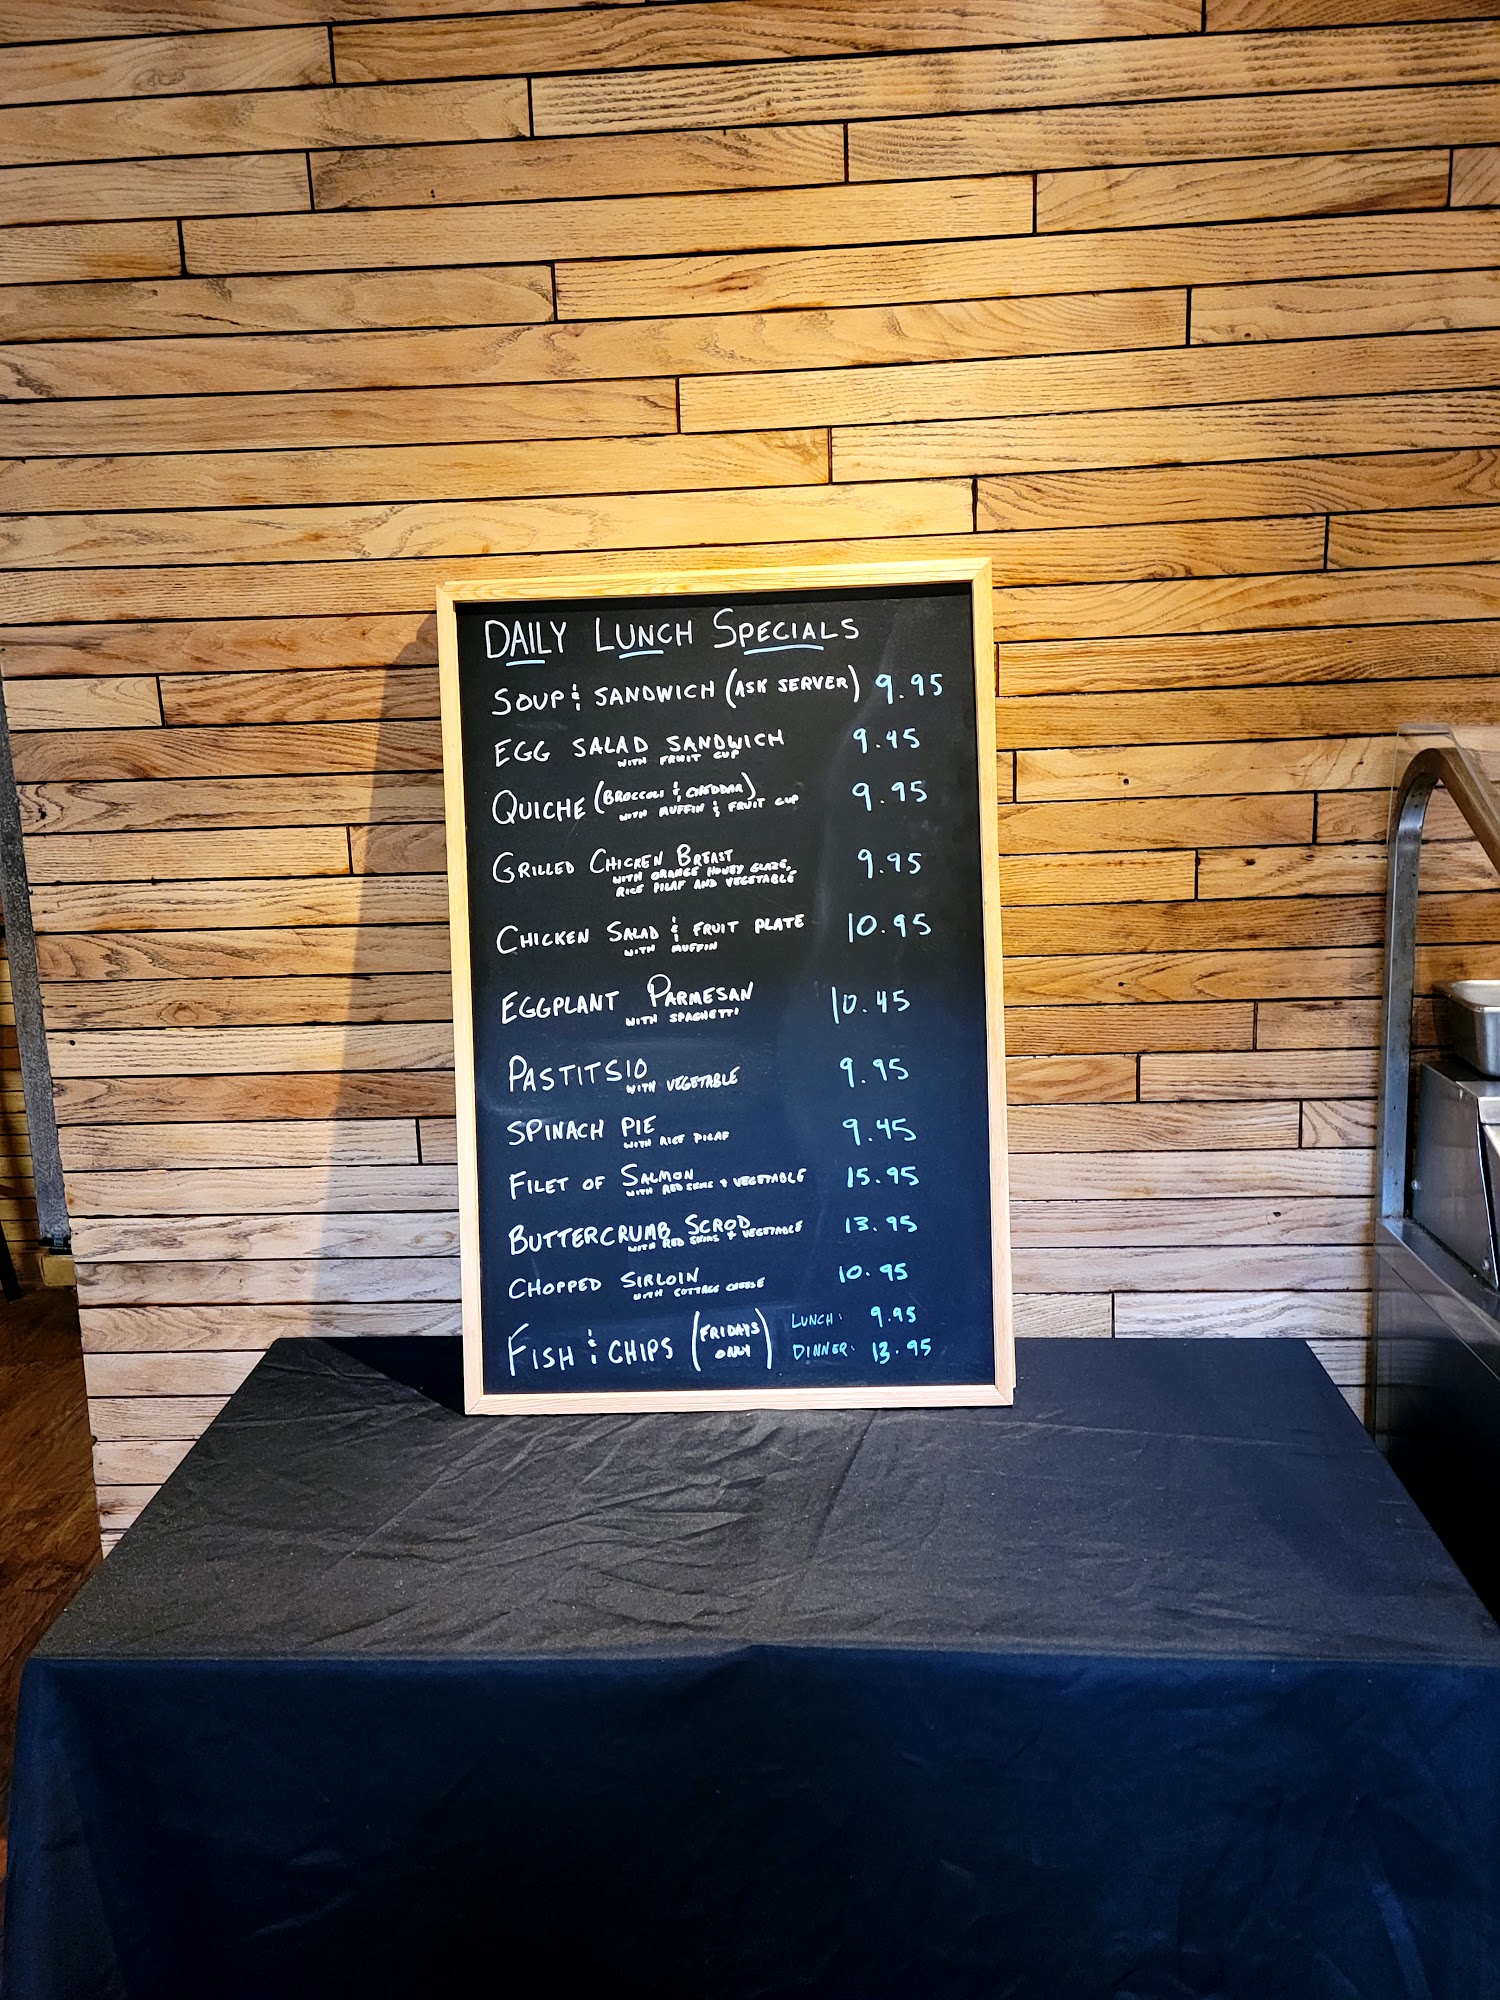 DAILY LUNCH SPECIALS
SOUP & SANDWICH (ASK SERVER) 9.95
EGG SALAD SANDWICH 9.45
WITH FRUIT CUP
QUICHE (BROCCOLI & CHEDDAR) 9.95
WITH MUFFIN & FRUIT CUP
GRILLED CHICKEN BREAST 9.95
WITH ORANGE HONEY GLAZE,
RICE PILAF AND VEGETABLE
CHICKEN SALAD & FRUIT PLATE 10.95
WITH MUFFIN
EGGPLANT PARMESAN 10.45
WITH SPAGHETTI
PASTITSIO 9.95
WITH VEGETABLE
SPINACH PIE 9.45
WITH RICE PILAF
FILET OF SALMON 15.95
WITH RED SKINS + VEGETABLE
BUTTERCRUMB SCROD 13.95
WITH RED SKINS + VEGETABLE
CHOPPED SIRLOIN 10.95
WITH COTTAGE CHEESE
FISH & CHIPS (FRIDAYS ONLY) LUNCH: 9.95
DINNER: 13.95